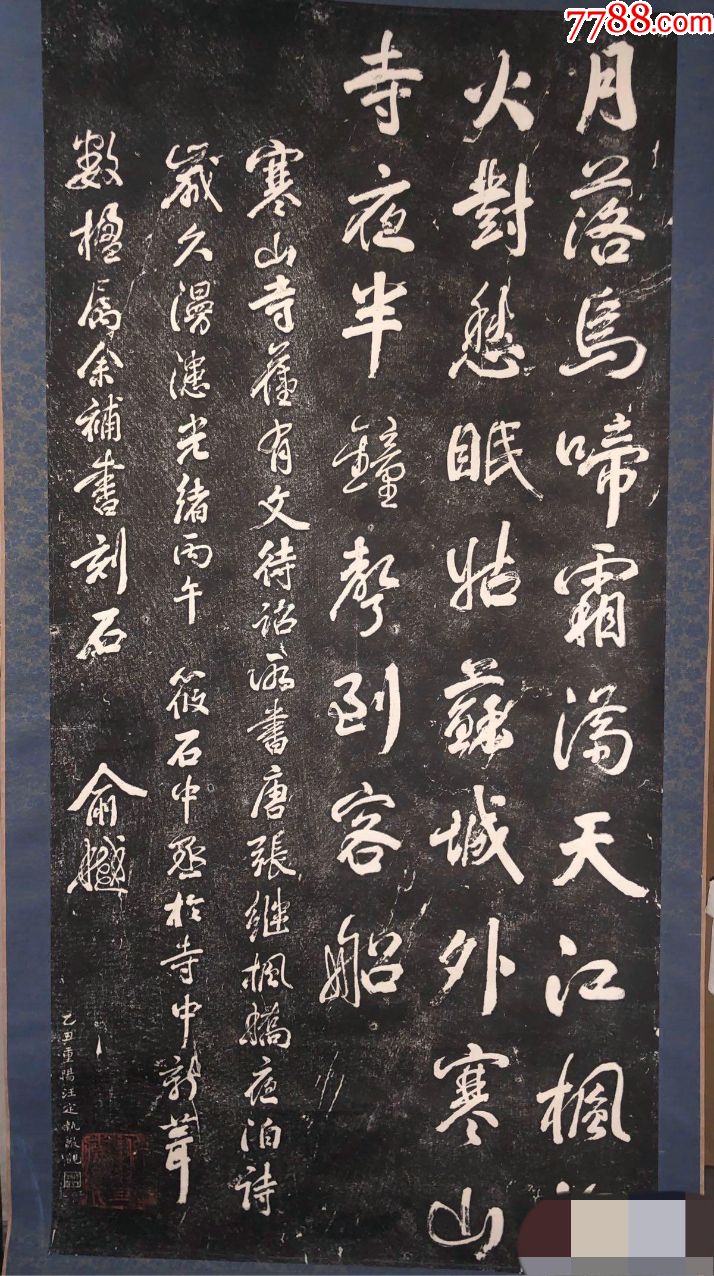 7788.com
月落烏啼霜滿天江楓
火對愁眠姑蘇城外寒山
寺夜半鐘聲到客船
寒山寺舊有文待詔所書唐張繼楓橋夜泊詩
歲久漫漶光緒丙午 筱石中丞於寺中新葺
數楹屬余補書刻石 俞樾
乙丑重陽汪定執敬觀